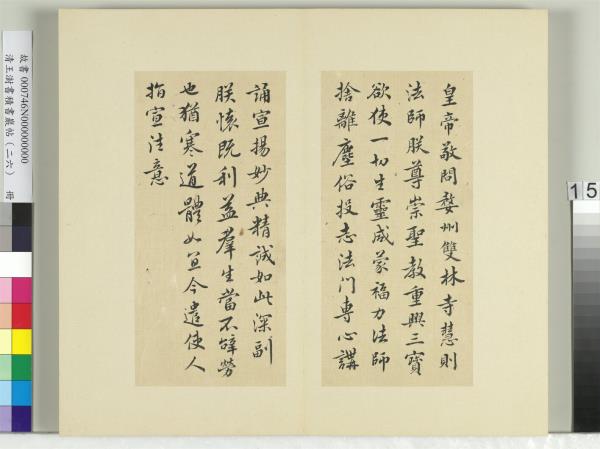 皇帝敬問婺州雙林寺慧則
法師朕尊崇聖教重興三寶
欲使一切生靈咸蒙福力法師
捨離塵俗投志法門專心講
誦宣揚妙典精誠如此深副
朕懷既利益羣生當不辭勞
也猶寒道體如宜今遣使人
指宣往意
故書000746N000000000
清王澍書積書巖帖(二六) 冊
15